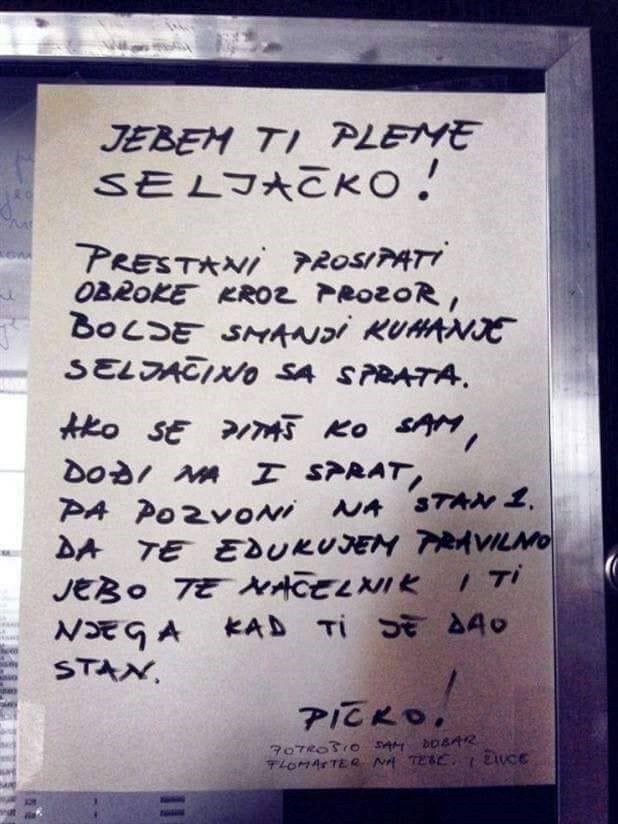 JEBEM TI PLEME
SELJAČKO!
PRESTANI PROSIPATI
OBROKE KROZ PROZOR,
BOLJE SMANJI KUHANJE
SELJAČINO SA SPRATA.
AKO SE PITAŠ KO SAM,
DOĐI NA I SPRAT,
PA POZVONI NA STAN 1.
DA TE EDUKUJEM PRAVILNO
JEBO TE NAČELNIK I TI
NJEGA KAD TI JE DAO
STAN.
PIČKO!
POTROŠIO SAM DOBAR
FLOMASTER NA TEBE. I ŽIVCE